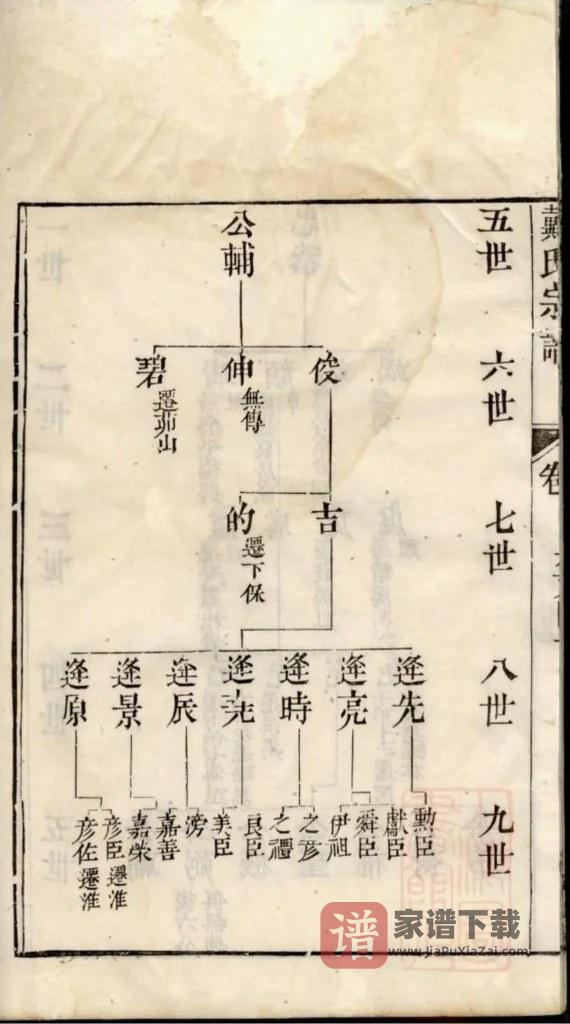 戴氏宗譜
卷
五世
公輔
六世
俊
伸 無傳
碧 遷茆山
七世
吉
的 遷下保
八世
逢先
逢亮
逢時
逢尭
逢辰
逢景
逢原
九世
勲臣
獻臣
舜臣
伊祖
之彦
之禮
良臣
美臣
滂
嘉善
嘉榮
彦臣遷淮
彦佐遷淮
谱 家谱下载
www.JiaPuXiaZai.com